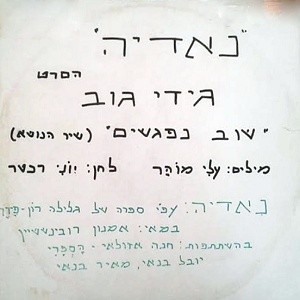 "נאדיה"
הסרט
גידי גוב
"שוב נפגשים" (שיר הנושא)
מילים: עלי מוהר לחן: יוני רכטר
נאדיה: עפ"י ספרה של גלילה רון-פדר
במאי: אמנון רובינשטיין
בהשתתפות: חנה אזולאי-הספרי
יובל בנאי, מאיר בנאי